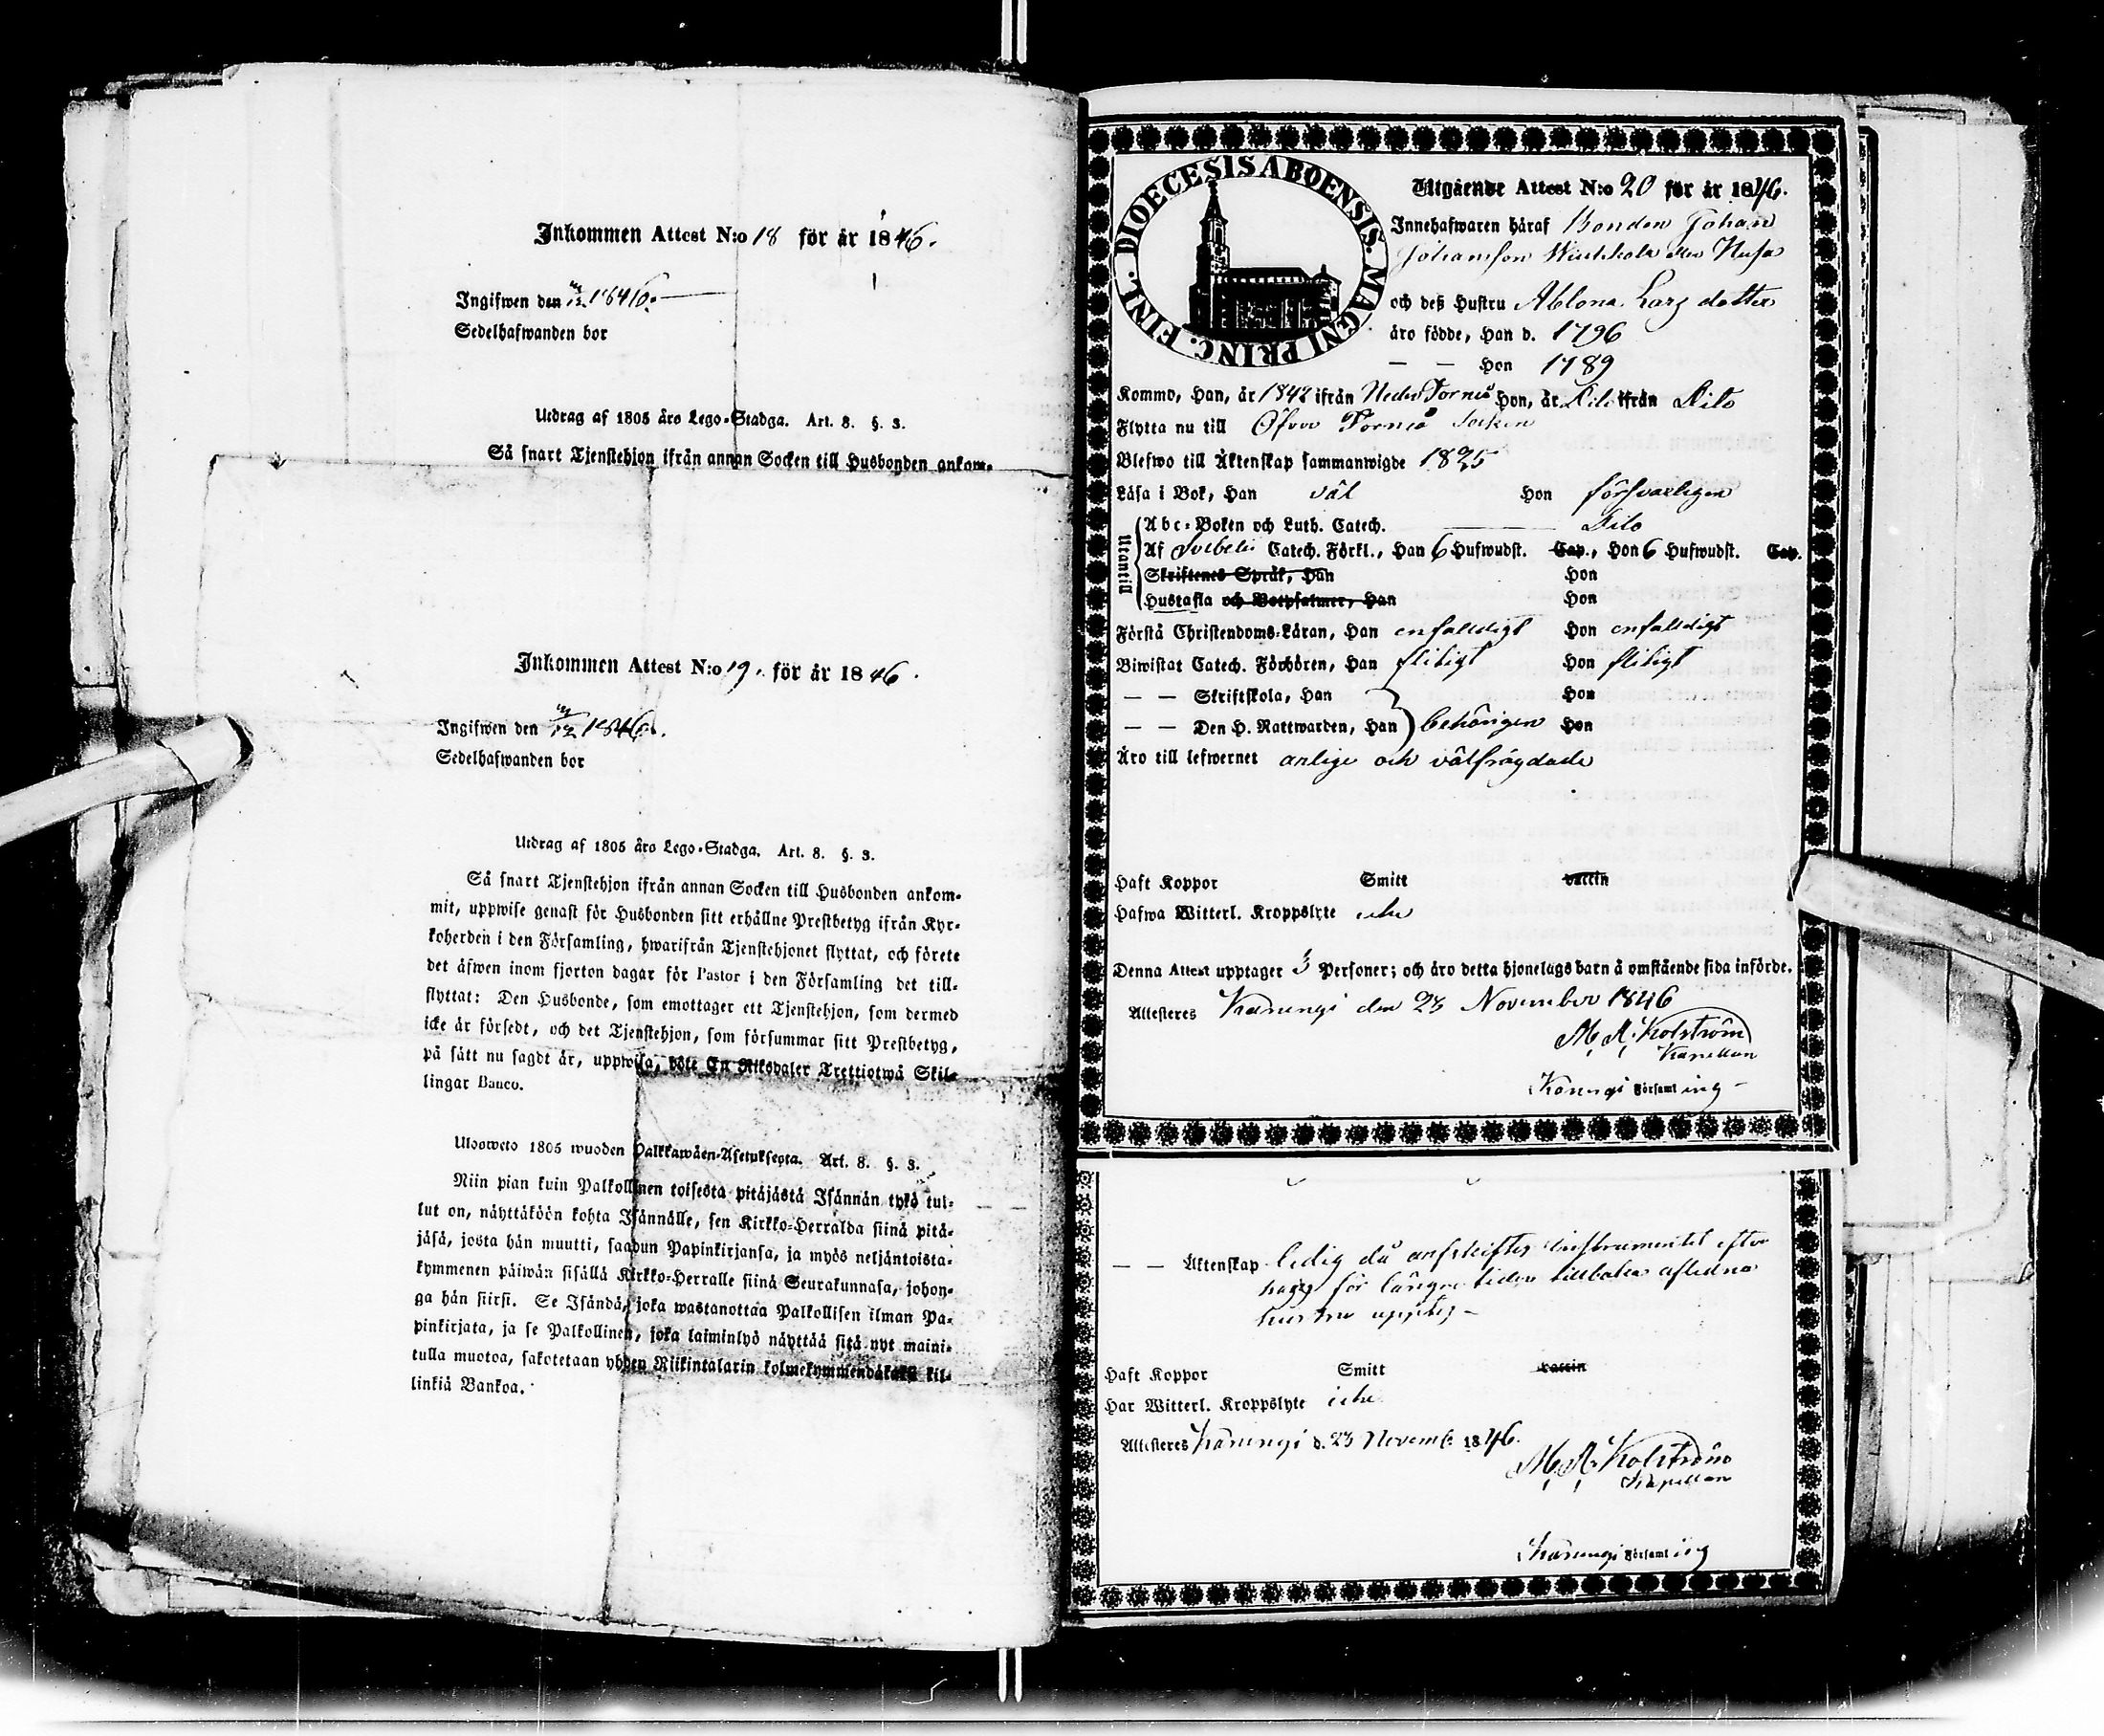 Inkommen Attest N:o 18 för år 1846.
Ingifwen den 1846.
Sedelhafwanden bor
Utdrag af 1805 års Lego-Stadga. Art. 8. §. 3.
Så snart Tjenstehjon ifrån annan Socken till Husbonden ankom-
Inkommen Attest N:o 19. för år 1846.
Ingifwen den 1846.
Sedelhafwanden bor
Utdrag af 1805 års Lego-Stadga. Art. 8. §. 3.
Så snart Tjenstehjon ifrån annan Socken till Husbonden ankom-
mit, uppwise genast för Husbonden sitt erhållne Prestbetyg ifrån Kyr-
koherden i den Församling, hwarifrån Tjenstehjonet flyttat, och förete
det äfwen inom fjorton dagar för Pastor i den Församling det till-
flyttat: Den Husbonde, som emottager ett Tjenstehjon, som dermed
icke är försedt, och det Tjenstehjon, som försummar sitt Prestbetyg,
på sätt nu sagdt är, uppwisa, böte En Riksdaler Trettiotwå Skil-
lingar Banco.
Ulosweto 1805 wuoden Palkkawäen-Asetuksesta. Art. 8. §. 3.
Niin pian kuin Palkollinen toisesta pitäjästä Isännän tykö tul-
lut on, näyttäköön kohta Isännälle, sen Kirkko-Herralda siinä pitä-
jäsä, josta hän muutti, saadun Papinkirjansa, ja myös neljäntoista-
kymmenen päiwän sisällä Kirkko-Herralle siinä Seurakunnasa, johon-
ga hän siirsi. Se Isändä, joka wastanottaa Palkollisen ilman Pa-
pinkirjata, ja se Palkollinen, joka laiminlyö näyttää sitä nyt maini-
tulla muotoa, sakotetaan yhden Riikintalarin kolmekymmendäkaksi kil-
linkiä Bankoa.
DIOECESIS ABOENSIS. MAGNI PRINC. FINL.
Utgående Attest N:o 20 för år 1846.
Innehafwaren häraf Bonden Johan
Johansson
och deß Hustru Ablona Larsdotter
äro födde, Han d. 1796
— — Hon 1789
Kommo, Han, år 1842 ifrån Neder Torneå Hon, år Dito ifrån Dito
Flytta nu till Öfver Torneå Socken
Blefwo till Äktenskap sammanwigde 1825
Läsa i Bok, Han väl Hon försvarligen
Utantill
Abc-Boken och Luth. Catech. Dito
Af Svebelii Catech. Förkl., Han 6 Hufwudst. Cap., Hon 6 Hufwudst. Cap.
Skriftenes Språk, Han Hon
Hustafla och Botpsalmer, Han Hon
Förstå Christendoms-Läran, Han enfaldigt Hon enfaldigt
Biwistat Catech. Förhören, Han flitigt Hon flitigt
— — Skriftskola, Han Hon
— — Den H. Nattwarden, Han behörigen Hon
Äro till lefwernet ärlige och välfrägdade
Haft Koppor Smitt vaccin
Hafwa Witterl. Kroppslyte icke
Denna Attest upptager 3 Personer; och äro detta hjonelags barn å omstående sida införde.
Attesteres Karungi den 23 November 1846
M. A. Kolström
Kapellan
Karungi Församling
— — Äktenskap ledig då arfskiftes instrumentet efter
hans för längre tider tillbaka aflidna
hustru
Haft Koppor Smitt vaccin
Har Witterl. Kroppslyte icke
Attesteres Karungi d. 23 Novemb. 1846.
M. A. Kolström
Kapellan
Karungi Församling